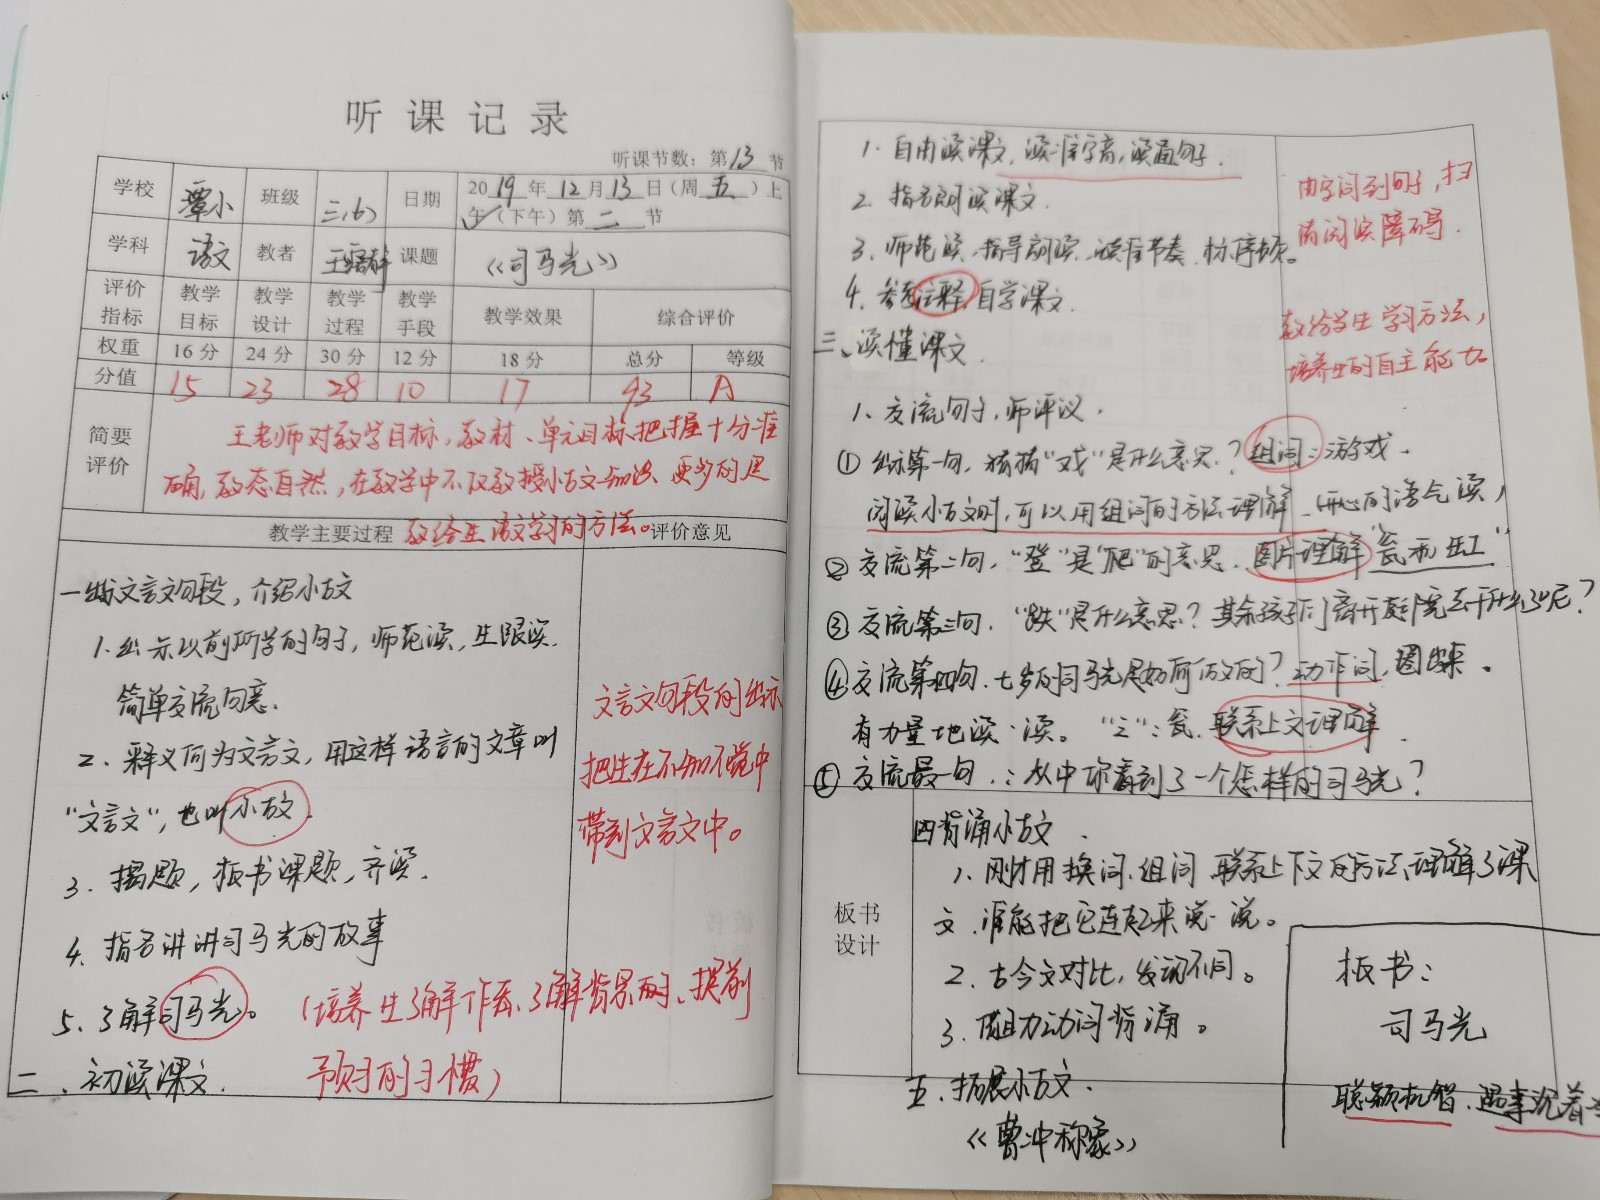 听课记录
听课节数：第13节
学校 潭小 班级 三(6) 日期 2019年12月13日(周五)上
午(下午)第二节
学科 语文 教者 课题 《司马光》
评价指标 教学目标 教学设计 教学过程 教学手段 教学效果 综合评价
权重 16分 24分 30分 12分 18分 总分 等级
分值 15 23 28 10 17 93 A
简要评价
王老师对教学目标,教材、单元目标把握十分准
确,教态自然,在教学中不仅教授小古文知识、更多的是
教给生语文学习的方法。
教学主要过程 评价意见
一出示文言文句段,介绍小古文
1.出示以前所学的句子,师范读,生跟读.
简单交流句意.
2.释义何为文言文,用这样语言的文章叫
“文言文”,也叫小古文.
3.揭题,板书课题,齐读.
4.指名讲讲司马光的故事
5.了解司马光。(培养生了解作者、了解背景的、提前
预习的习惯)
二、初读课文.
文言文句段的出示
把生在不知不觉中
带到文言文中。
1.自由读课文,读准字音,读通句子.
2.指名朗读课文.
3.师范读,指导朗读,读准节奏,标停顿。
4.参考注释,自学课文.
由字词到句子,扫
清阅读障碍.
教给学生学习方法,
培养生的自主能力.
三、读懂课文.
1、交流句子,师评议.
①出示第一句,猜猜“戏”是什么意思?组词:游戏.
阅读小古文时,可以用组词的方法理解.开心的语气读,
②交流第二句,“登”是“爬”的意思.图片理解“瓮和缸”
③交流第三句,“跌”是什么意思?其余孩子们离开庭院去干什么呢?
④交流第四句.七岁的司马光是如何做的?动作词,圈出来。
有力量地读一读。“之”:瓮.联系上文理解.
⑤交流最一句.:从中你看到了一个怎样的司马光?
四背诵小古文.
1、刚才用换词.组词.联系上下文的方法,理解了课
文.谁能把它连起来说一说。
2.古今文对比,发现不同。
3.借助动词背诵。
五.拓展小古文.
《曹冲称象》
板书设计
板书:
司马光
聪颖机智.遇事沉着